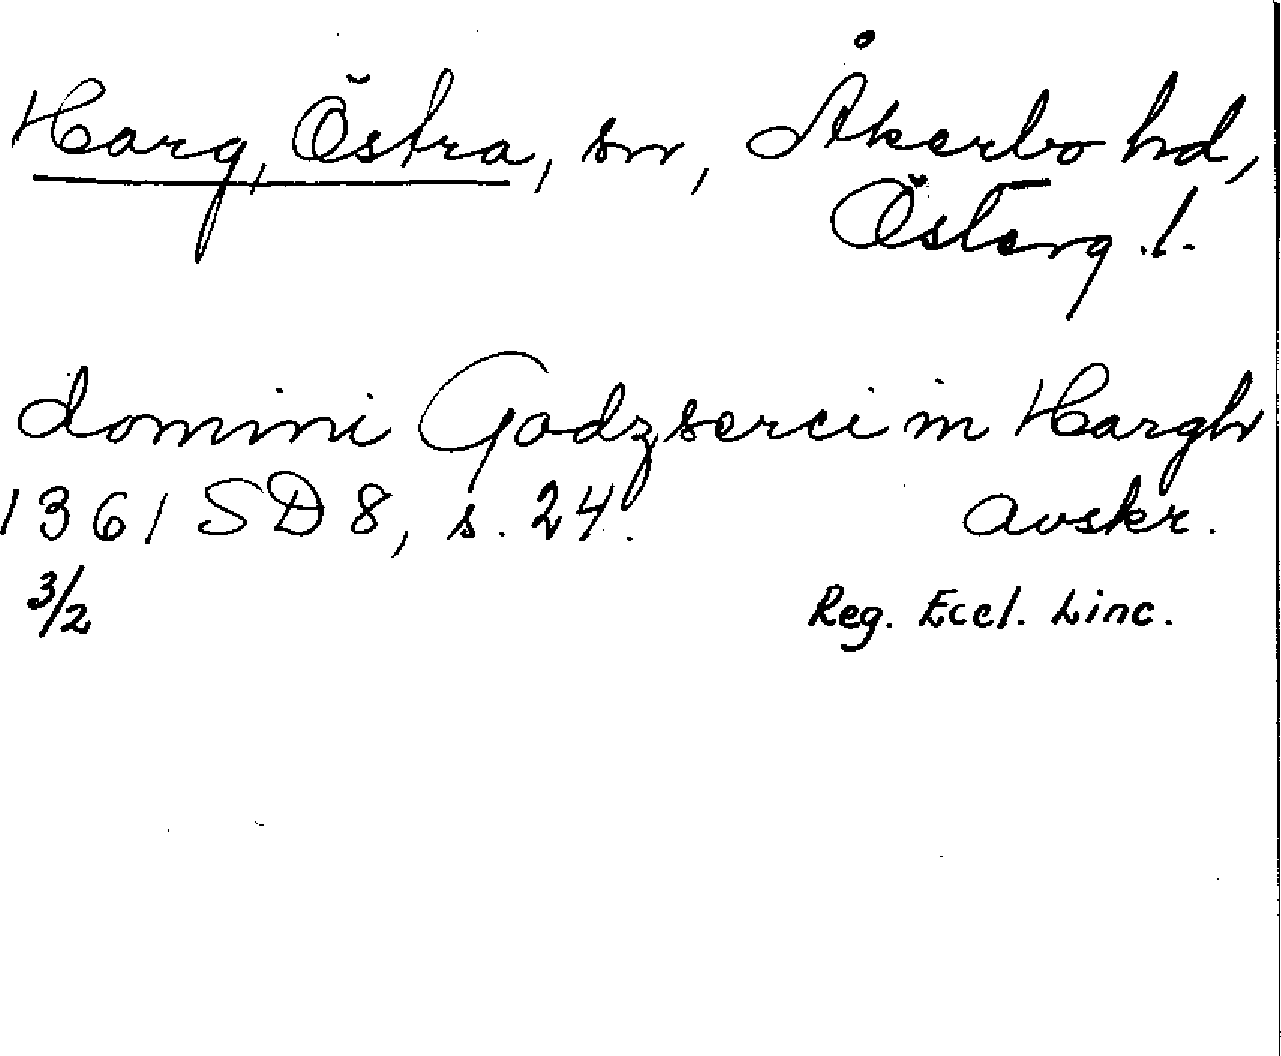 Harg, Östra, sn, Åkerbo hd,
Österg.l.
domini Godzserci in Hargh
1361 SD 8, s. 24. avskr.
3/2 Reg. Eccl. Linc.